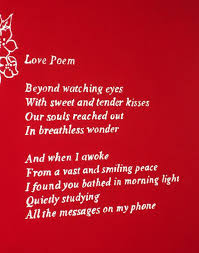 Love Poem
Beyond watching eyes
With sweet and tender kisses
Our souls reached out
In breathless wonder
And when I awoke
From a vast and smiling peace
I found you bathed in morning light
Quietly studying
All the messages on my phone